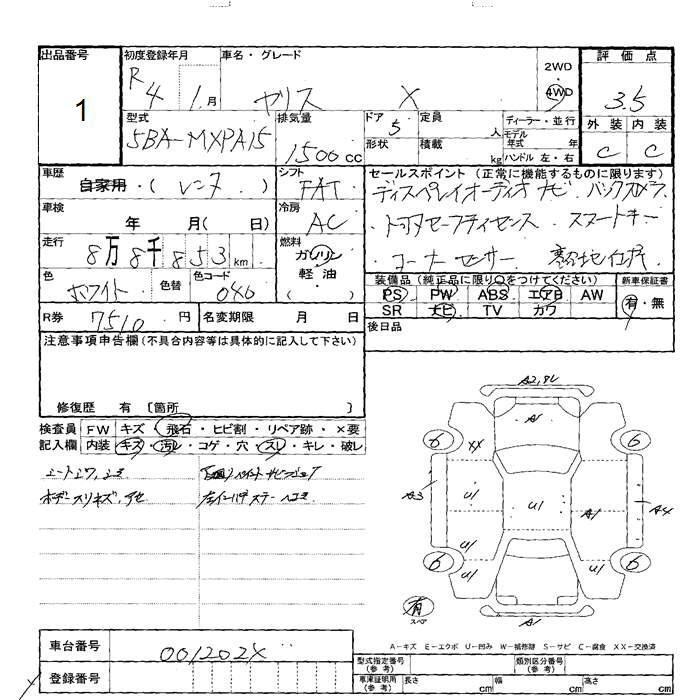 出品番号 初度登録年月 車名・グレード 2WD 評価点
1 R4 1月 ヤリス X 4WD 3.5
型式 排気量 ドア 定員 ディーラー・並行 外装 内装
5BA-MXPA15 1500cc 5 人 モデル年式 年 C C
形状 積載 kg ハンドル 左・右
車歴 シフト セールスポイント (正常に機能するものに限ります)
自家用・( レンタ ) FAT ディスプレイオーディオナビ. バックカメラ.
車検 年 月( 日) 冷房 AC ・トヨタセーフティセンス. スマートキー
走行 8万8千853km 燃料 ガソリン 軽油 ( ) ・コーナーセンサー.
色 色替 色コード 装備品 (純正品に限り○をつけてください) 新車保証書
ホワイト 040 PS PW ABS エアB AW 有・無
SR ナビ TV カワ
R券 7510円 名変期限 月 日 後日品
注意事項申告欄 (不具合内容等は具体的に記入して下さい)
修復歴 有 〔箇所 〕
検査員 FW キズ・飛石・ヒビ割・リペア跡・×要
記入欄 内装 キズ・汚レ・コゲ・穴・スレ・キレ・破レ
ボデースリキズ.
A2,8U
A1
6 XX 6
A3 U1 U1 A1 A4
U1
6 U1 6
有
スペア A1
車台番号 001202X
登録番号
A-キズ E-エクボ U-凹み W-補修跡 S-サビ C-腐食 XX-交換済
型式指定番号(参考) 類別区分番号(参考)
車庫証明用(参考) 長さ cm 幅 cm 高さ cm